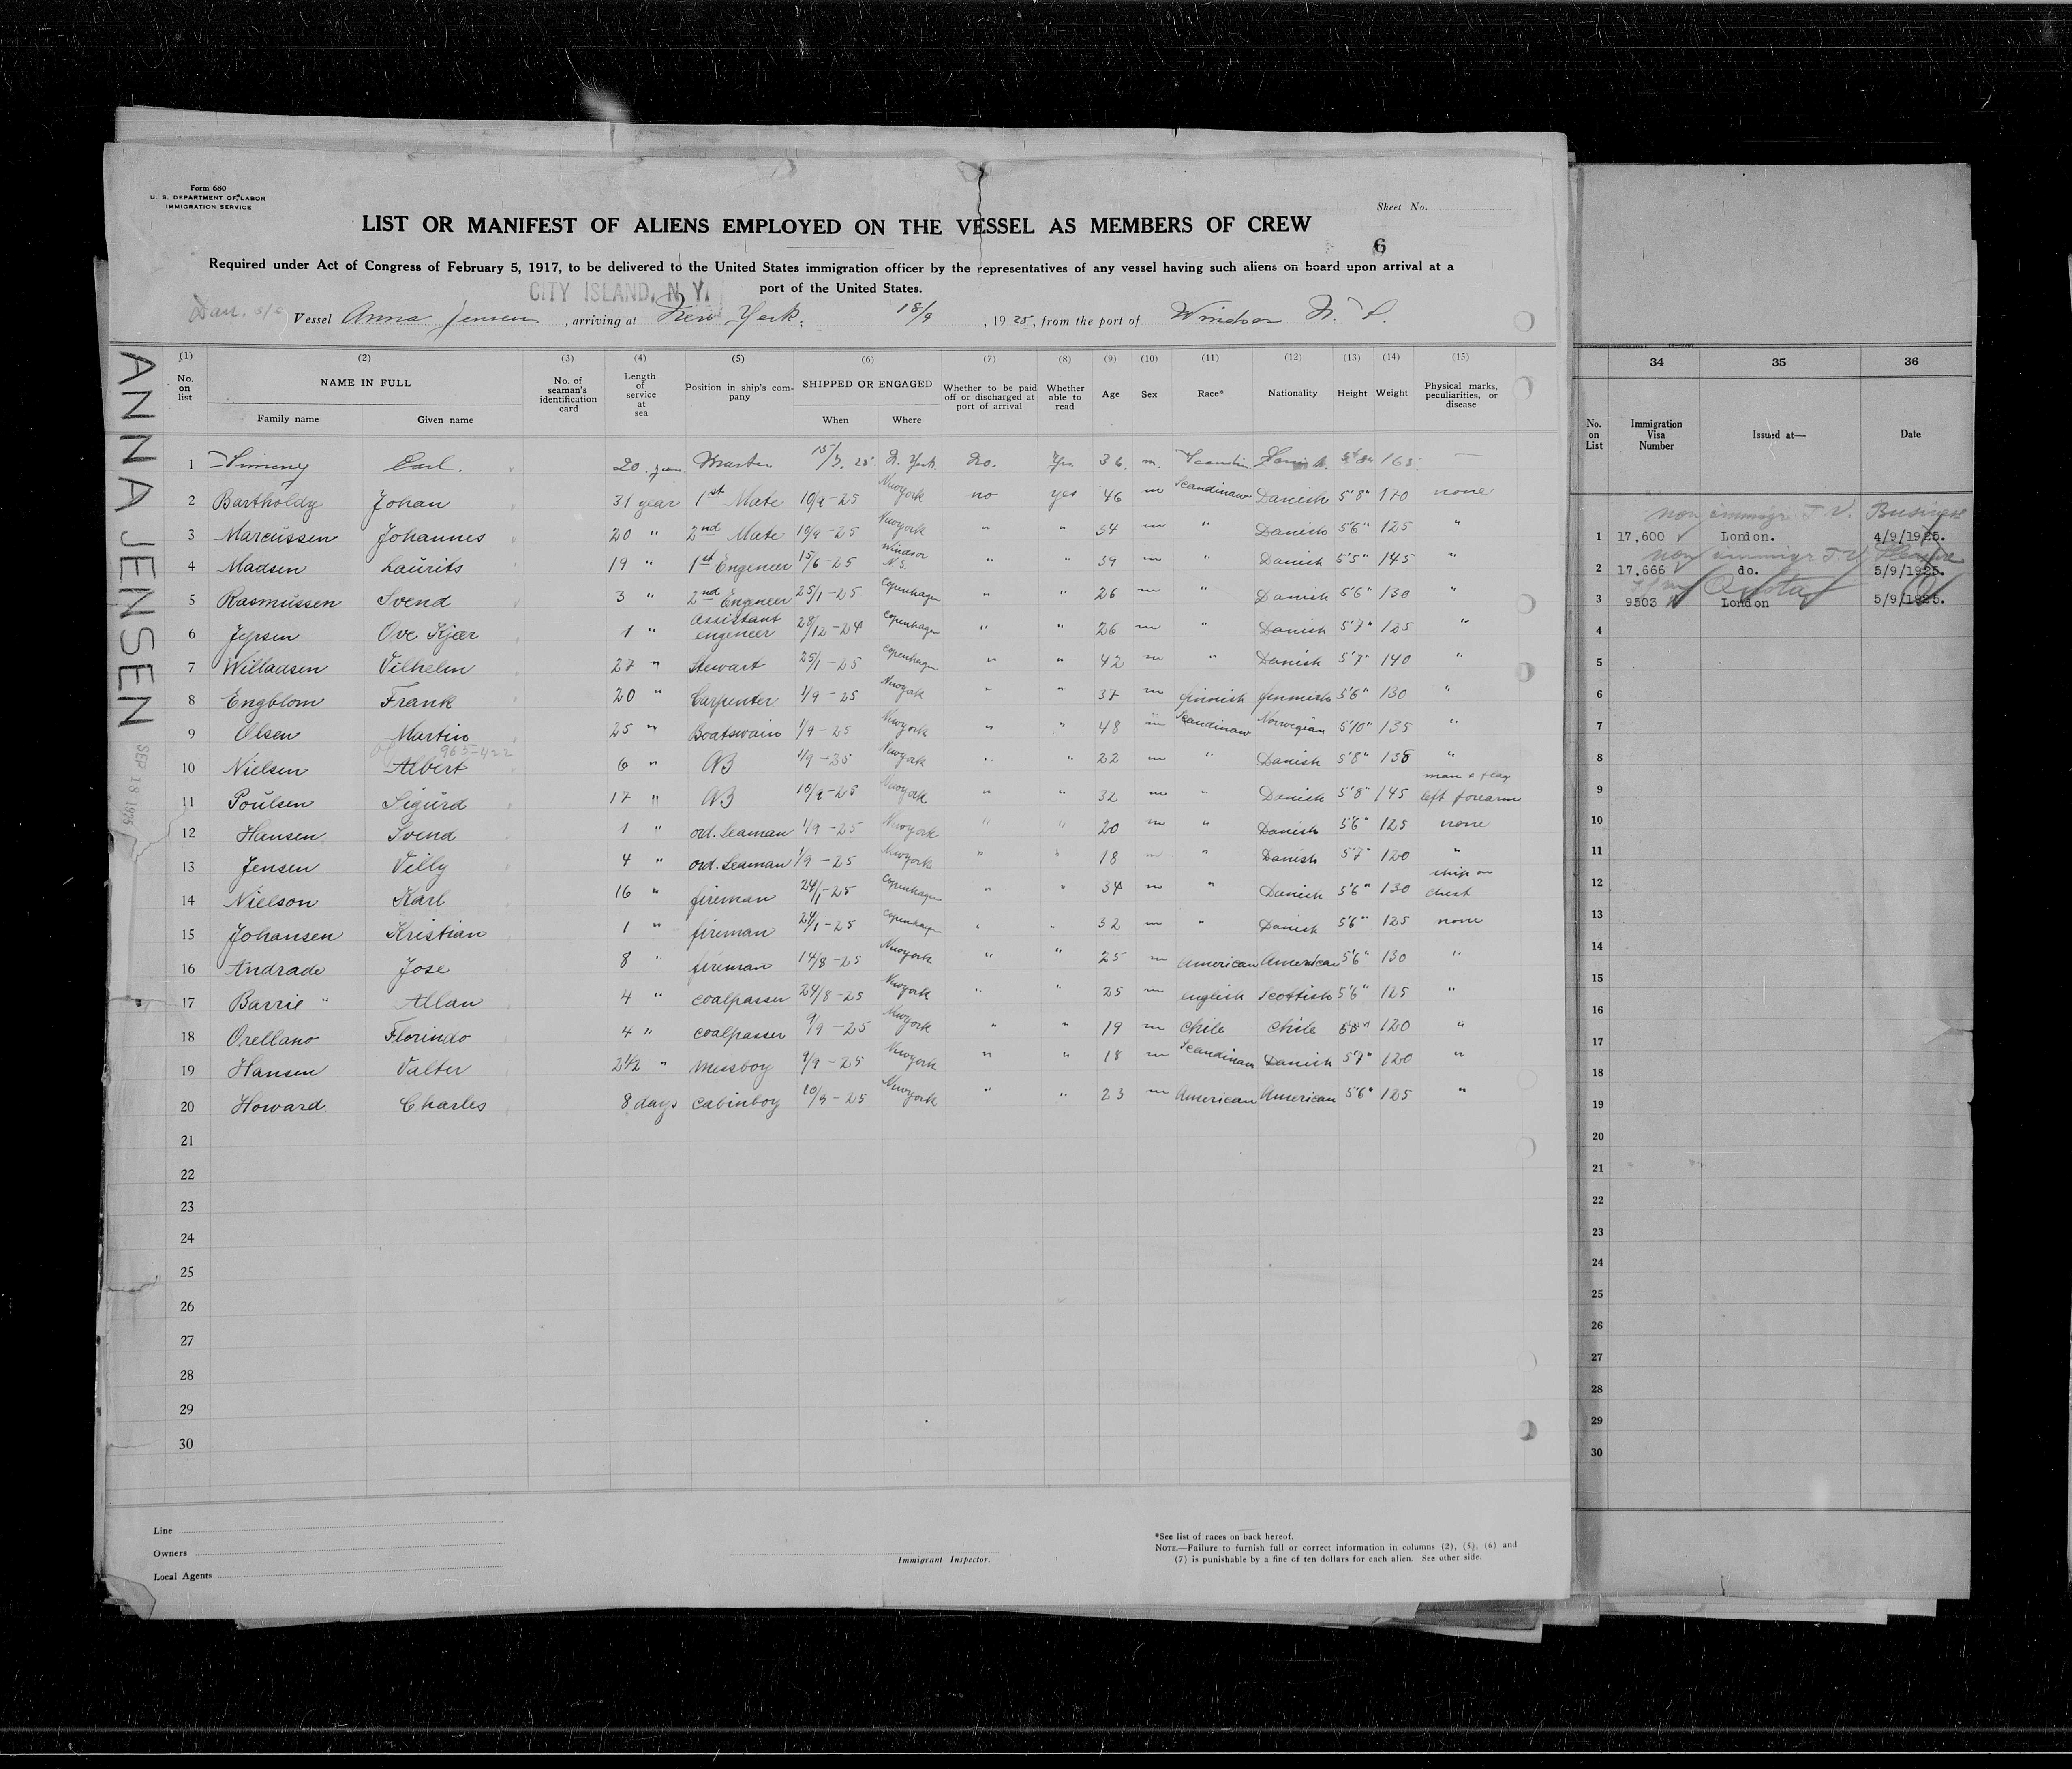 Form 680
U. S. DEPARTMENT OF LABOR
IMMIGRATION SERVICE
Sheet No.
LIST OR MANIFEST OF ALIENS EMPLOYED ON THE VESSEL AS MEMBERS OF CREW
6
Required under Act of Congress of February 5, 1917, to be delivered to the United States immigration officer by the representatives of any vessel having such aliens on board upon arrival at a
port of the United States.
CITY ISLAND, N. Y.
Dan. s/s Vessel Anna Jensen, arriving at New York, 18/9, 1925, from the port of Windsor N. S.
ANNA JENSEN
SEP 18 1925
(1) (2) (3) (4) (5) (6) (7) (8) (9) (10) (11) (12) (13) (14) (15)
No. on list NAME IN FULL Family name Given name No. of seaman's identification card Length of service at sea Position in ship's company SHIPPED OR ENGAGED When Where Whether to be paid off or discharged at port of arrival Whether able to read Age Sex Race* Nationality Height Weight Physical marks, peculiarities, or disease
1 Carl. 20 Master 25. N. York. No. Yes 36. m. 165. —
2 Bartholdy Johan 31 year 1st Mate 10/9-25 Newyork no yes 46 m Scandinaw Danish 5'8" 170 none
3 Marcussen Johannes 20 " 2nd Mate 10/9-25 Newyork " " 34 m " Danish 5'6" 125 "
4 Madsen Laurits 19 " 1st Engeneer 15/6-25 Windsor N.S. " " 39 m " Danish 5'5" 145 "
5 Rasmussen Svend 3 " 2nd Engeneer 25/1-25 Copenhagen " " 26 m " Danish 5'6" 130 "
6 Jepsen Ove Kjær 1 " Assistant engeneer 28/12-24 Copenhagen " " 26 m " Danish 5'7" 125 "
7 Willadsen Vilhelm 27 " Stewart 25/1-25 Copenhagen " " 42 m " Danish 5'7" 140 "
8 Engblom Frank 20 " Carpenter 1/9-25 Newyork " " 37 m finnish finnish 5'6" 130 "
9 Olsen Martin 25 " Boatswain 1/9-25 Newyork " " 48 m Scandinaw Norwegian 5'10" 135 "
965-422
10 Nielsen Albert 6 " AB 1/9-25 Newyork " " 22 m " Danish 5'8" 135 "
11 Poulsen Sigurd 17 " AB 10/9-25 Newyork " " 32 m " Danish 5'8" 145 man & flag left forearm
12 Hansen Svend 1 " ord. Seaman 1/9-25 Newyork " " 20 m " Danish 5'6" 125 none
13 Jensen Villy 4 " ord. Seaman 1/9-25 Newyork " " 18 m " Danish 5'7" 120 "
14 Nielson Karl 16 " fireman 24/1-25 Copenhagen " " 34 m " Danish 5'6" 130 ship on chest
15 Johansen Kristian 1 " fireman 24/1-25 Copenhagen " " 32 m " Danish 5'6" 125 none
16 Andrade Jose 8 " fireman 14/8-25 Newyork " " 25 m American American 5'6" 130 "
17 Barrie " Allan 4 " coalpasser 24/8-25 Newyork " " 25 m english Scottish 5'6" 125 "
18 Orellano Florindo 4 " coalpasser 9/9-25 Newyork " " 19 m Chile Chile 120 "
19 Hansen Valter 2 1/2 " Messboy 9/9-25 Newyork " " 18 m Scandinaw Danish 5'7" 120 "
20 Howard Charles 8 days cabinboy 10/9-25 Newyork " " 23 m American American 5'6" 125 "
21
22
23
24
25
26
27
28
29
30
Line
Owners
Local Agents
Immigrant Inspector.
*See list of races on back hereof.
NOTE.—Failure to furnish full or correct information in columns (2), (5), (6) and
(7) is punishable by a fine of ten dollars for each alien. See other side.
34 35 36
No. on List Immigration Visa Number Issued at— Date
non immigr. T. V. Business
1 17,600 London. 4/9/1925.
non immigr T.V. Pleasure
2 17,666 do. 5/9/1925.
3 9503 London 5/9/1925.
4
5
6
7
8
9
10
11
12
13
14
15
16
17
18
19
20
21
22
23
24
25
26
27
28
29
30